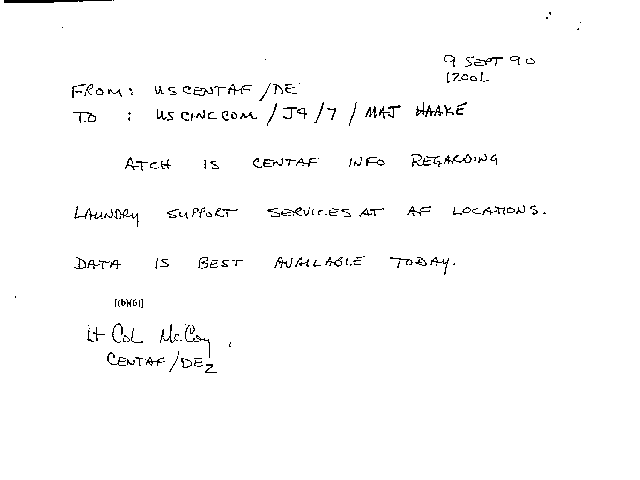 9 SEPT 90
1200L
FROM: USCENTAF/DE
TO : USCINCCOM/J4/7/MAJ HAAKE
ATCH IS CENTAF INFO REGARDING
LAUNDRY SUPPORT SERVICES AT AF LOCATIONS.
DATA IS BEST AVAILABLE TODAY.
[(b)(6)]
Lt Col McCoy
CENTAF/DEZ